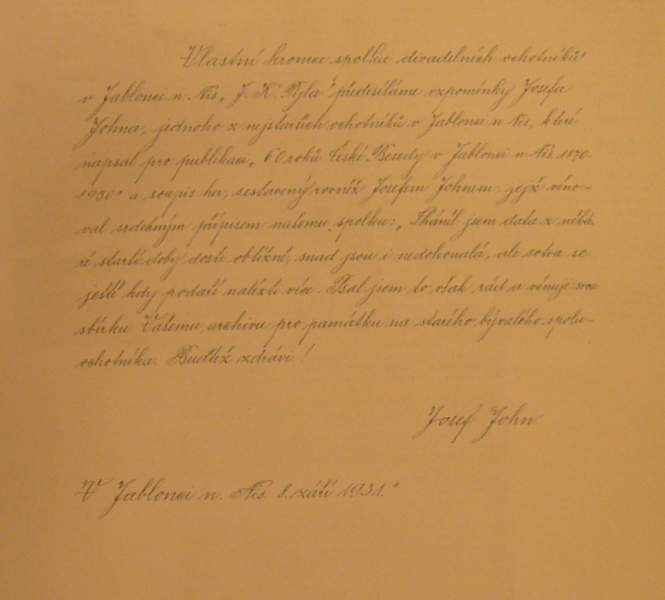 Vlastní kronice spolku divadelních ochotníků
v Jablonci n. Nis. „J. K. Tyla" předesíláme vzpomínky Josefa
Johna, jednoho z nejstarších ochotníků v Jablonci n. Nis., které
napsal pro publikaci „60 roků České Besedy v Jablonci n. Nis. 1870-
1930" a soupis her, sestavený rovněž Josefem Johnem, jejž věno-
val srdečným přípisem našemu spolku: „Sháněl jsem data z
ré starší doby dosti obtížně, snad jsou i nedokonalá, ale sotva se
ještě kdy podaří nalézti více. Psal jsem to však rád a věnuji svou
sbírku Vašemu archivu pro památku na starého bývalého spolu-
ochotníka. Buďtež zdrávi!
Josef John.
V Jablonci n. Nis. 8. září 1931."